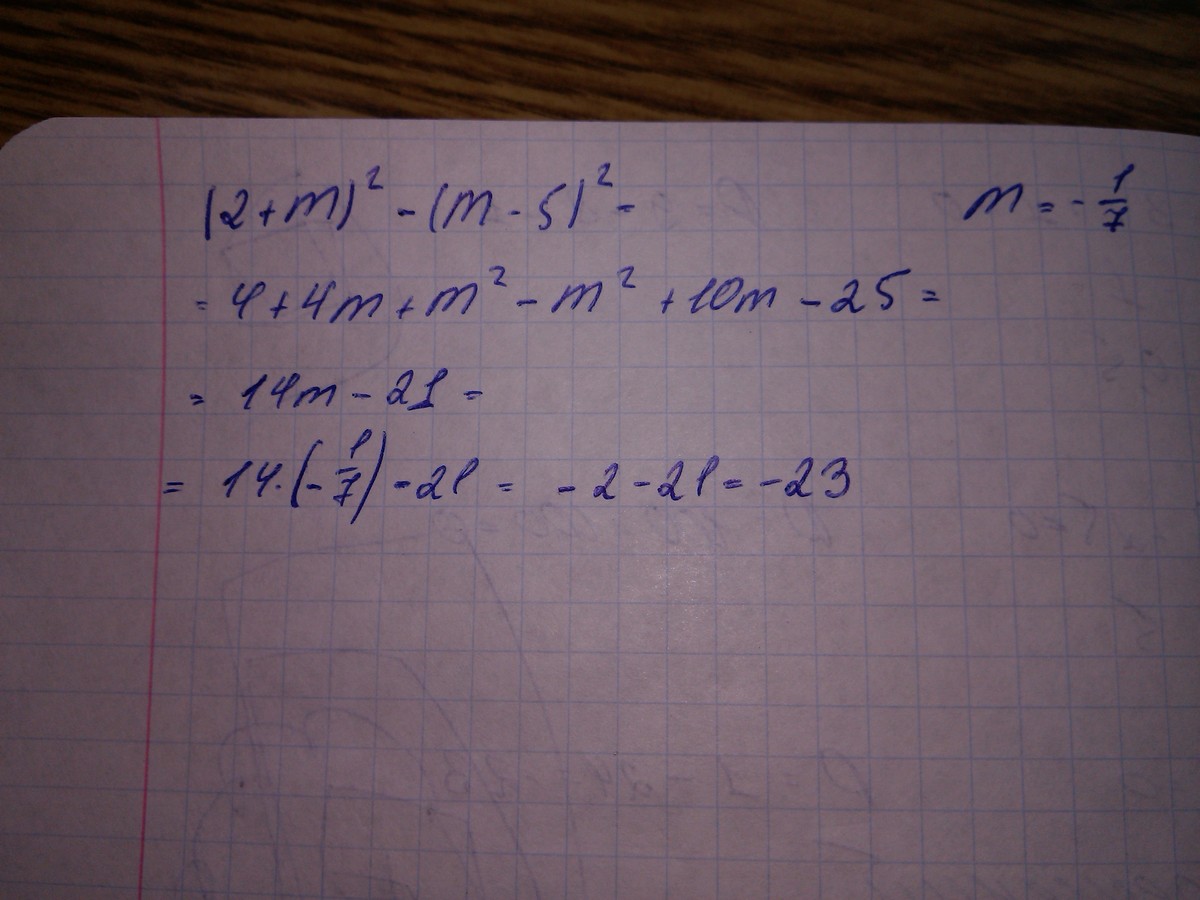 (2+m)² - (m - 5)² = m = - 1/7
= 4 + 4m + m² - m² + 10m - 25 =
= 14m - 21 =
= 14·(- 1/7) - 21 = - 2 - 21 = -23